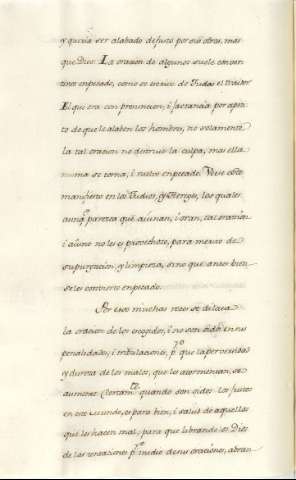 y queria ser alabado de justo por sus obras, mas
que Dios. La oracion de algunos suele conver-
tirse en pecado, como se escrive de Judas el traidor
El qui ora con presuncion, i jactancia por apeti-
to de que le alaben los hombres, no solamente
la tal oracion no destruie la culpa, mas ella
misma se torna, i vuelve en pecado. Vese esto
manifiesto en los Judios, y Hereges, los quales
aunq parezca que aiunan, i oran, tal oracion
i aiuno no les es provechoso, para medio de
su purgacion, y limpieza, sino que antes bien
se les convierte en pecado.
Por eso muchas veces se dilata
la oracion de los escogidos, i no son oidos en sus
penalidades, i tribulaciones, pa que la perversidad
y dureza de los malos, que los atormentan, se
aumente. Ciertamte quando son oidos los justos
en este mundo, es para bien, i salud de aquellos
que les hacen mal, para que librandolos Dios
de las tentaciones pr medio de sus oraciones, abran